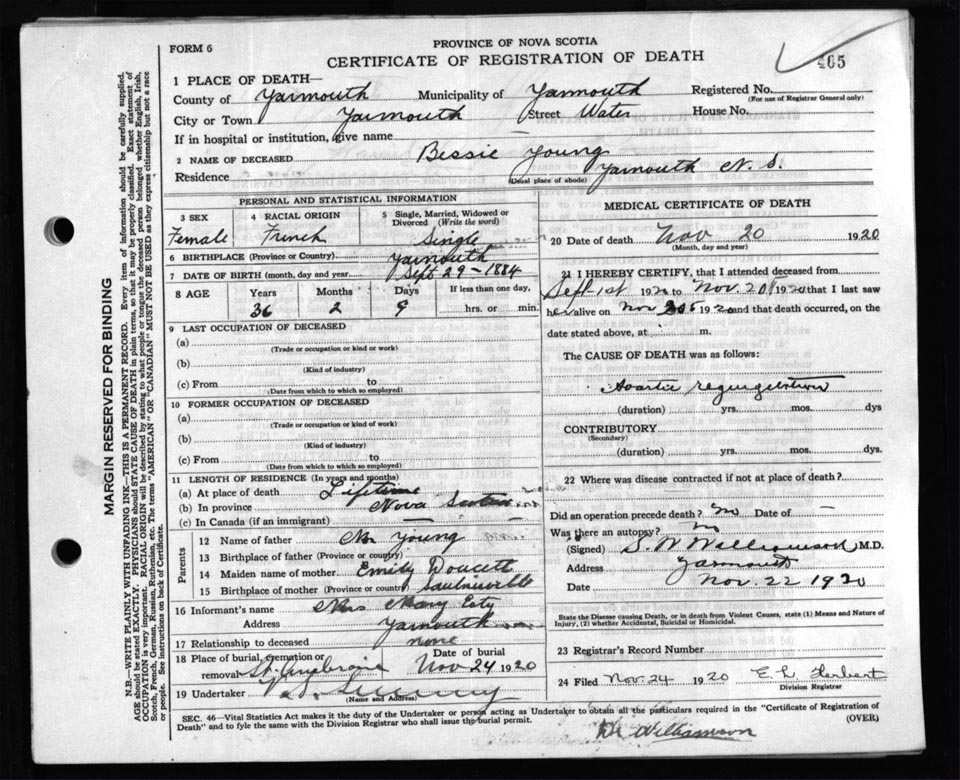 FORM 6
PROVINCE OF NOVA SCOTIA
CERTIFICATE OF REGISTRATION OF DEATH
465
1 PLACE OF DEATH—
County of Yarmouth Municipality of Yarmouth Registered No.
(For use of Registrar General only)
City or Town Yarmouth Street Water House No.
If in hospital or institution, give name —
2 NAME OF DECEASED Bessie Young
Residence Yarmouth N. S.
(Usual place of abode)
PERSONAL AND STATISTICAL INFORMATION
3 SEX
Female
4 RACIAL ORIGIN
French
5 Single, Married, Widowed or Divorced (Write the word)
Single
6 BIRTHPLACE (Province or Country) Yarmouth
7 DATE OF BIRTH (month, day and year) Sept 29 - 1884
8 AGE Years Months Days If less than one day,
36 2 9 hrs. or min.
9 LAST OCCUPATION OF DECEASED
(a)
(Trade or occupation or kind of work)
(b)
(Kind of industry)
(c) From to
(Date from which to which so employed)
10 FORMER OCCUPATION OF DECEASED
(a)
(Trade or occupation or kind of work)
(b)
(Kind of industry)
(c) From to
(Date from which to which so employed)
11 LENGTH OF RESIDENCE (In years and months)
(a) At place of death Lifetime
(b) In province Nova Scotia
(c) In Canada (if an immigrant) — —
Parents
12 Name of father Young
13 Birthplace of father (Province or country)
14 Maiden name of mother Emily Doucett
15 Birthplace of mother (Province or country)
16 Informant's name Mrs Mary Esty
Address Yarmouth
17 Relationship to deceased none
18 Place of burial, cremation or removal St. Ambrose
Date of burial Nov 24 1920
19 Undertaker
(Name and Address)
MEDICAL CERTIFICATE OF DEATH
20 Date of death Nov 20 1920
(Month, day and year)
21 I HEREBY CERTIFY, that I attended deceased from
Sept 1st 1920 to Nov. 20th 1920 that I last saw
her alive on Nov 20th 1920 and that death occurred, on the
date stated above, at m.
The CAUSE OF DEATH was as follows:
Aortic regurgitation
(duration) yrs. mos. dys
CONTRIBUTORY
(Secondary)
(duration) yrs. mos. dys.
22 Where was disease contracted if not at place of death?
Did an operation precede death? No Date of —
Was there an autopsy? No
(Signed) S. W. Williamson M.D.
Address Yarmouth
Date Nov. 22 1920
State the Disease causing Death, or in death from Violent Causes, state (1) Means and Nature of
Injury, (2) whether Accidental, Suicidal or Homicidal.
23 Registrar's Record Number
24 Filed Nov. 24 1920 E. L. Herbert
Division Registrar
SEC. 46—Vital Statistics Act makes it the duty of the Undertaker or person acting as Undertaker to obtain all the particulars required in the "Certificate of Registration of
Death" and to fyle the same with the Division Registrar who shall issue the burial permit.
(OVER)
Dr Williamson
MARGIN RESERVED FOR BINDING
N.B.—WRITE PLAINLY WITH UNFADING INK—THIS IS A PERMANENT RECORD. Every item of information should be carefully supplied.
AGE should be stated EXACTLY. PHYSICIANS should STATE CAUSE OF DEATH in plain terms, so that it may be properly classified. Exact statement of
OCCUPATION is very important. RACIAL ORIGIN will be described by stating to what people or tongue the deceased person belonged whether English, Irish,
Scotch, French, German, Russian, Ruthenian, etc. The terms "AMERICAN" or "CANADIAN" MUST NOT BE USED as they express citizenship but not a race
or people. See instructions on back of Certificate.